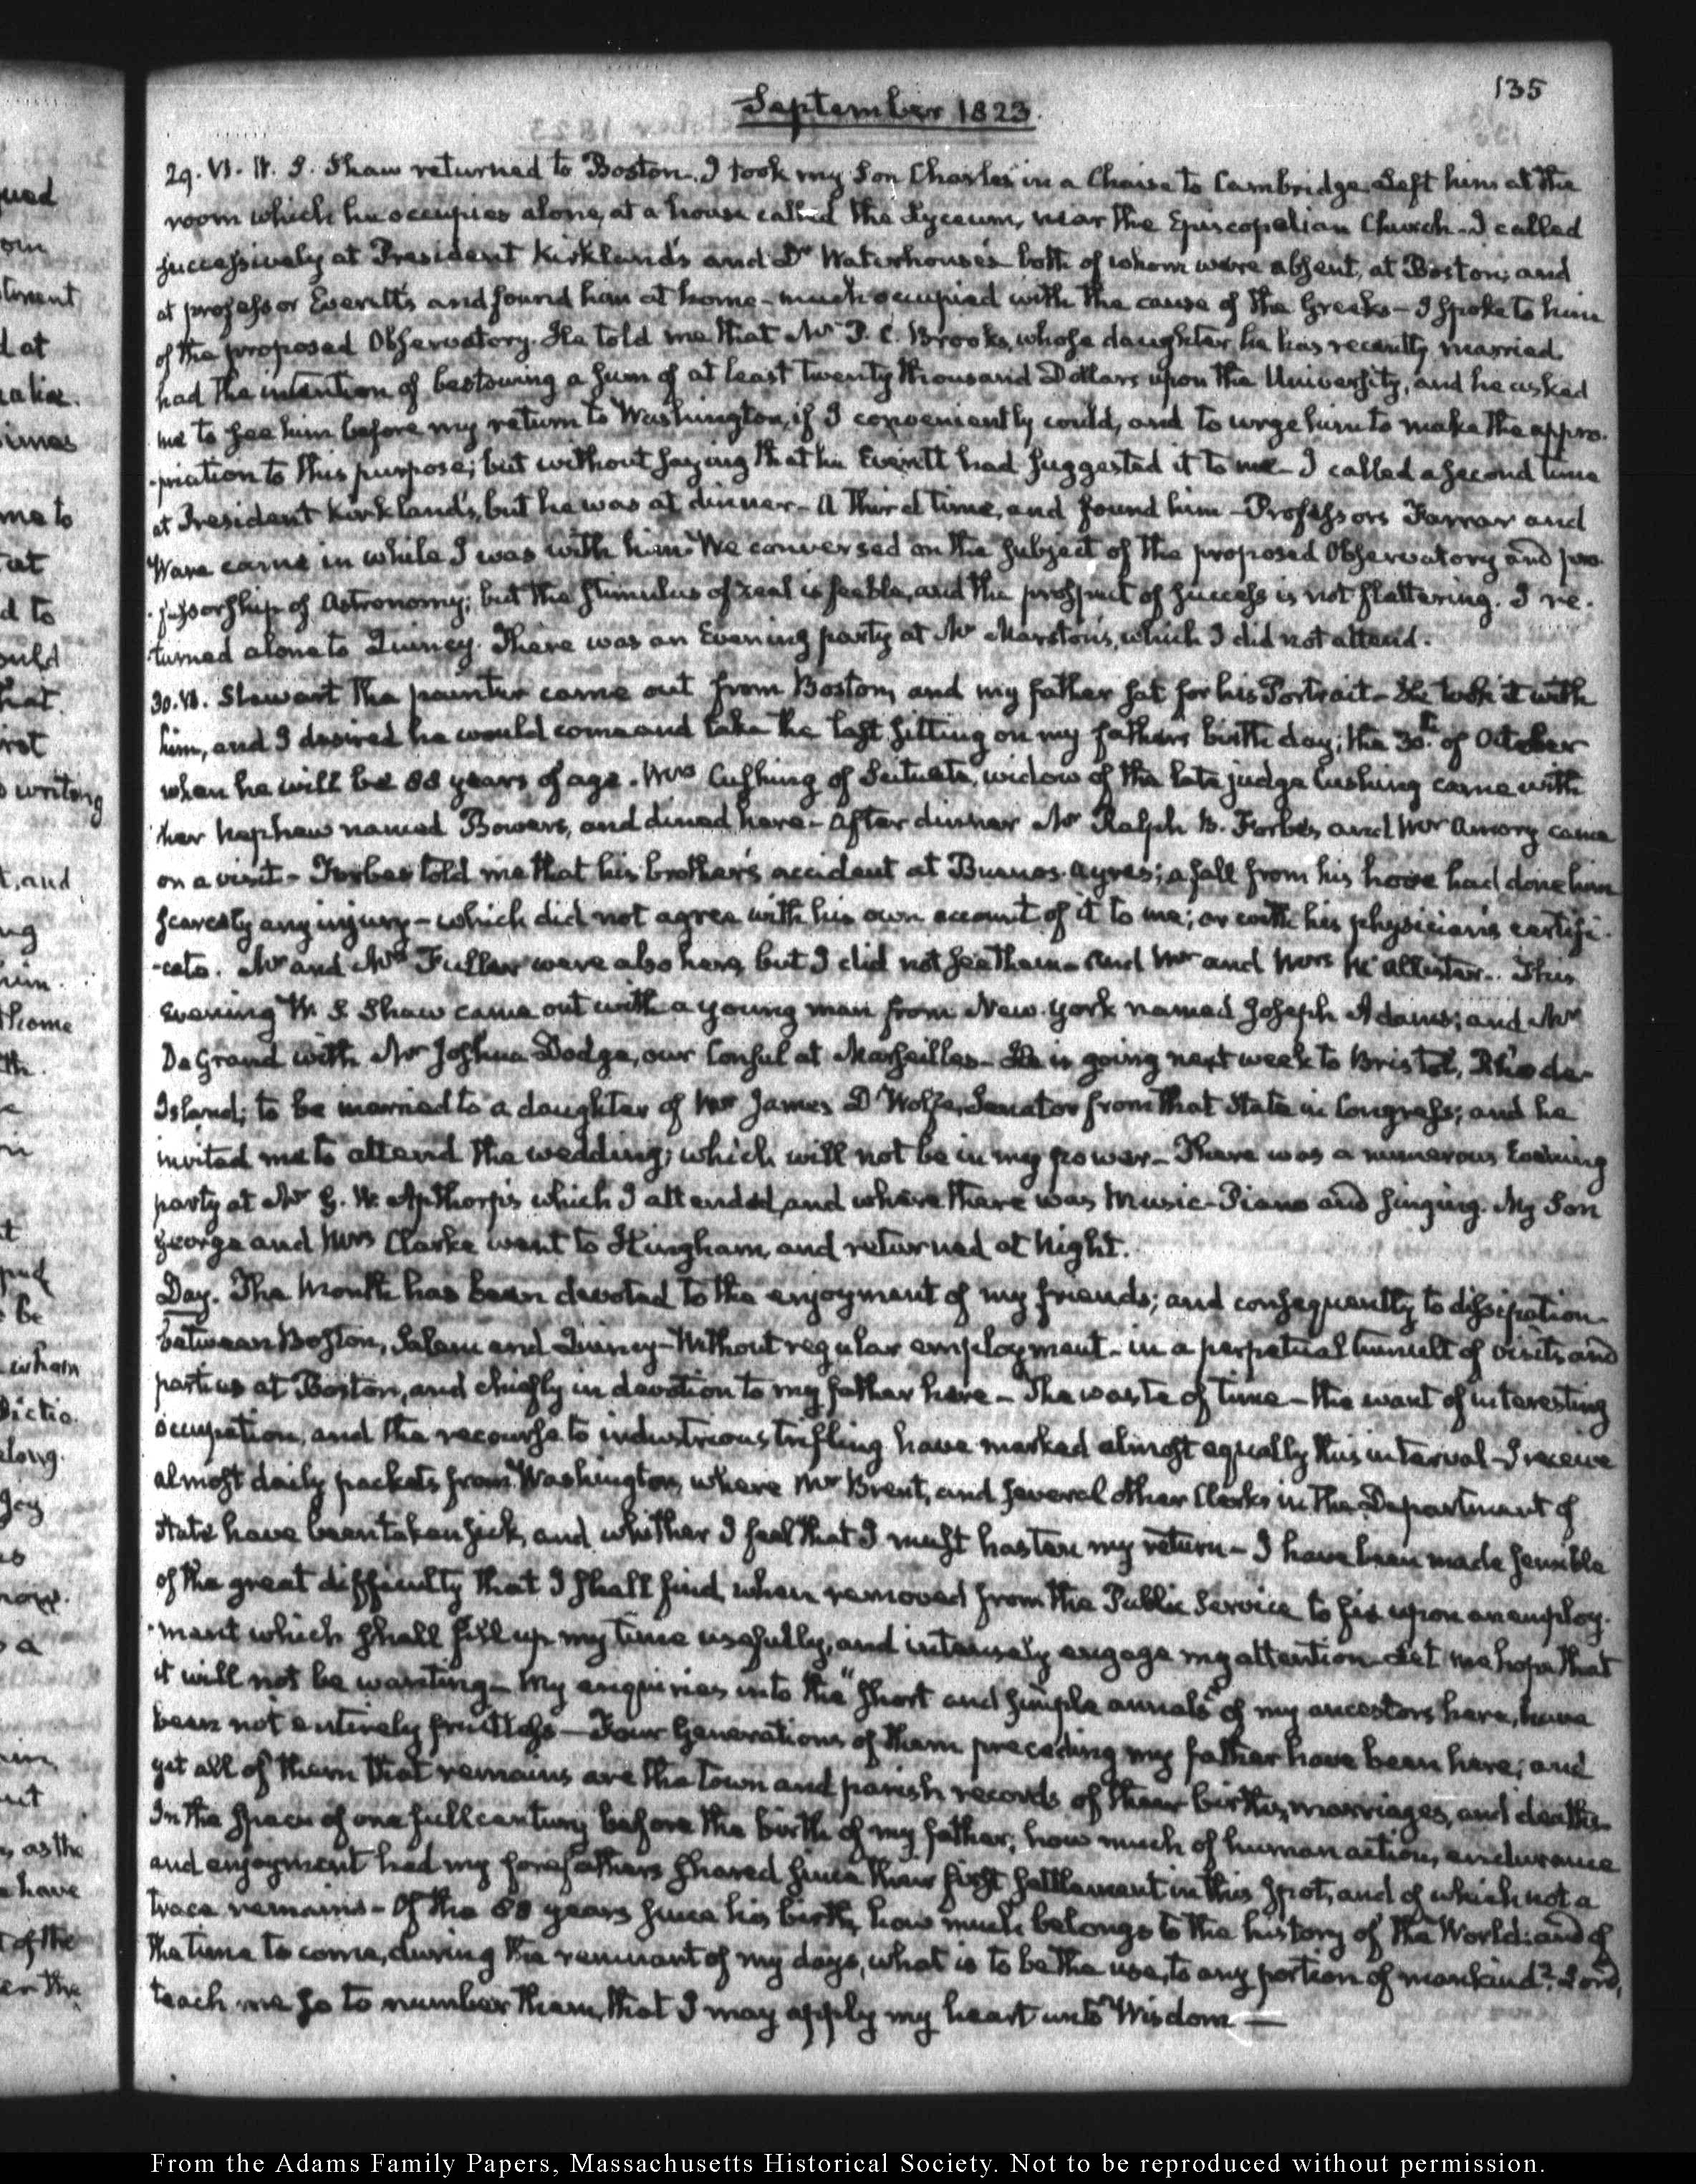 135
September 1823.
29. VI. W. S. Shaw returned to Boston. I took my Son Charles in a Chaise to Cambridge. Left him at the
room which he occupies alone, at a house called the Lyceum, near the Episcopelian Church. I called
successively at President Kirkland's and Dr Waterhouse's both of whom were absent, at Boston; and
at professor Everett's and found him at home - much occupied with the cause of the Greeks - I spoke to him
of the proposed Observatory. He told me that Mr P. C. Brooks, whose daughter he has recently married
had the intention of bestowing a sum of at least twenty thousand Dollars upon the University, and he asked
me to see him before my return to Washington, if I conveniently could, and to urge him to make the appro-
-priation to this purpose; but without saying that he Everett had suggested it to me - I called a second time
at President Kirkland's, but he was at dinner - A third time, and found him - Professors Farrar and
Ware came in while I was with him. We conversed on the subject of the proposed Observatory and pro-
-fessorship of Astronomy; but the stimulus of zeal is feeble, and the prospect of success is not flattering. I re-
-turned alone to Quincy. There was an Evening party at Mr Marston's, which I did not attend.
30. VI. Stewart the painter came out from Boston, and my father sat for his Portrait - He took it with
him, and I desired he would come and take the last sitting on my father's birth day; the 30th of October
when he will be 88 years of age. Mrs Cushing of Scituate, widow of the late judge Cushing came with
her nephew named Bowers, and dined here - After dinner Mr Ralph B. Forbes, and Mr Amory came
on a visit - Forbes told me that his brother's accident at Buenos-Ayres; a fall from his horse had done him
scarcely any injury - which did not agree with his own account of it to me; or with his physician's certifi-
-cate. Mr and Mrs Fuller were also here, but I did not see them - And Mr and Mrs McAllister. This
Evening W. S. Shaw came out with a young man from New-York named Joseph Adams; and Mr
De Grand with Mr Joshua Dodge, our Consul at Marseilles - He is going next week to Bristol, Rhode-
Island; to be married to a daughter of Mr James D'Wolfe, Senator from that State in Congress; and he
invited me to attend the wedding; which will not be in my power - There was a numerous Evening
party at Mr G. W. Apthorp's which I attended, and where there was Music - Piano and singing. My Son
George and Mrs Clarke went to Hingham, and returned at Night.
Day. The Month has been devoted to the enjoyment of my friends; and consequently to dissipation
between Boston, Salem and Quincy - Without regular employment - in a perpetual tumult of visits and
parties at Boston, and chiefly in devotion to my father here - The waste of time - the want of interesting
occupation, and the recourse to industrious trifling have marked almost equally this interval - I receive
almost daily packets from Washington, where Mr Brent, and several other Clerks in the Department of
State have been taken sick, and whither I feel that I must hasten my return - I have been made sensible
of the great difficulty that I shall find, when removed from the Public Service to fix upon an employ-
-ment which shall fill up my time usefully, and intensely engage my attention - Let me hope that
it will not be wanting - My enquiries into the "short and simple annals" of my ancestors here, have
been not entirely fruitless - Four Generations of them preceding my father have been here; and
yet all of them that remains are the town and parish records of their births, marriages, and deaths.
In the space of one full century before the birth of my father; how much of human action, endurance
and enjoyment had my forefathers shared since their first settlement in this spot, and of which not a
trace remains - Of the 88 years since his birth, how much belongs to the history of the World: and of
the time to come, during the remnant of my days, what is to be the use, to any portion of mankind? Lord,
teach me so to number them, that I may apply my heart unto Wisdom —
From the Adams Family Papers, Massachusetts Historical Society. Not to be reproduced without permission.